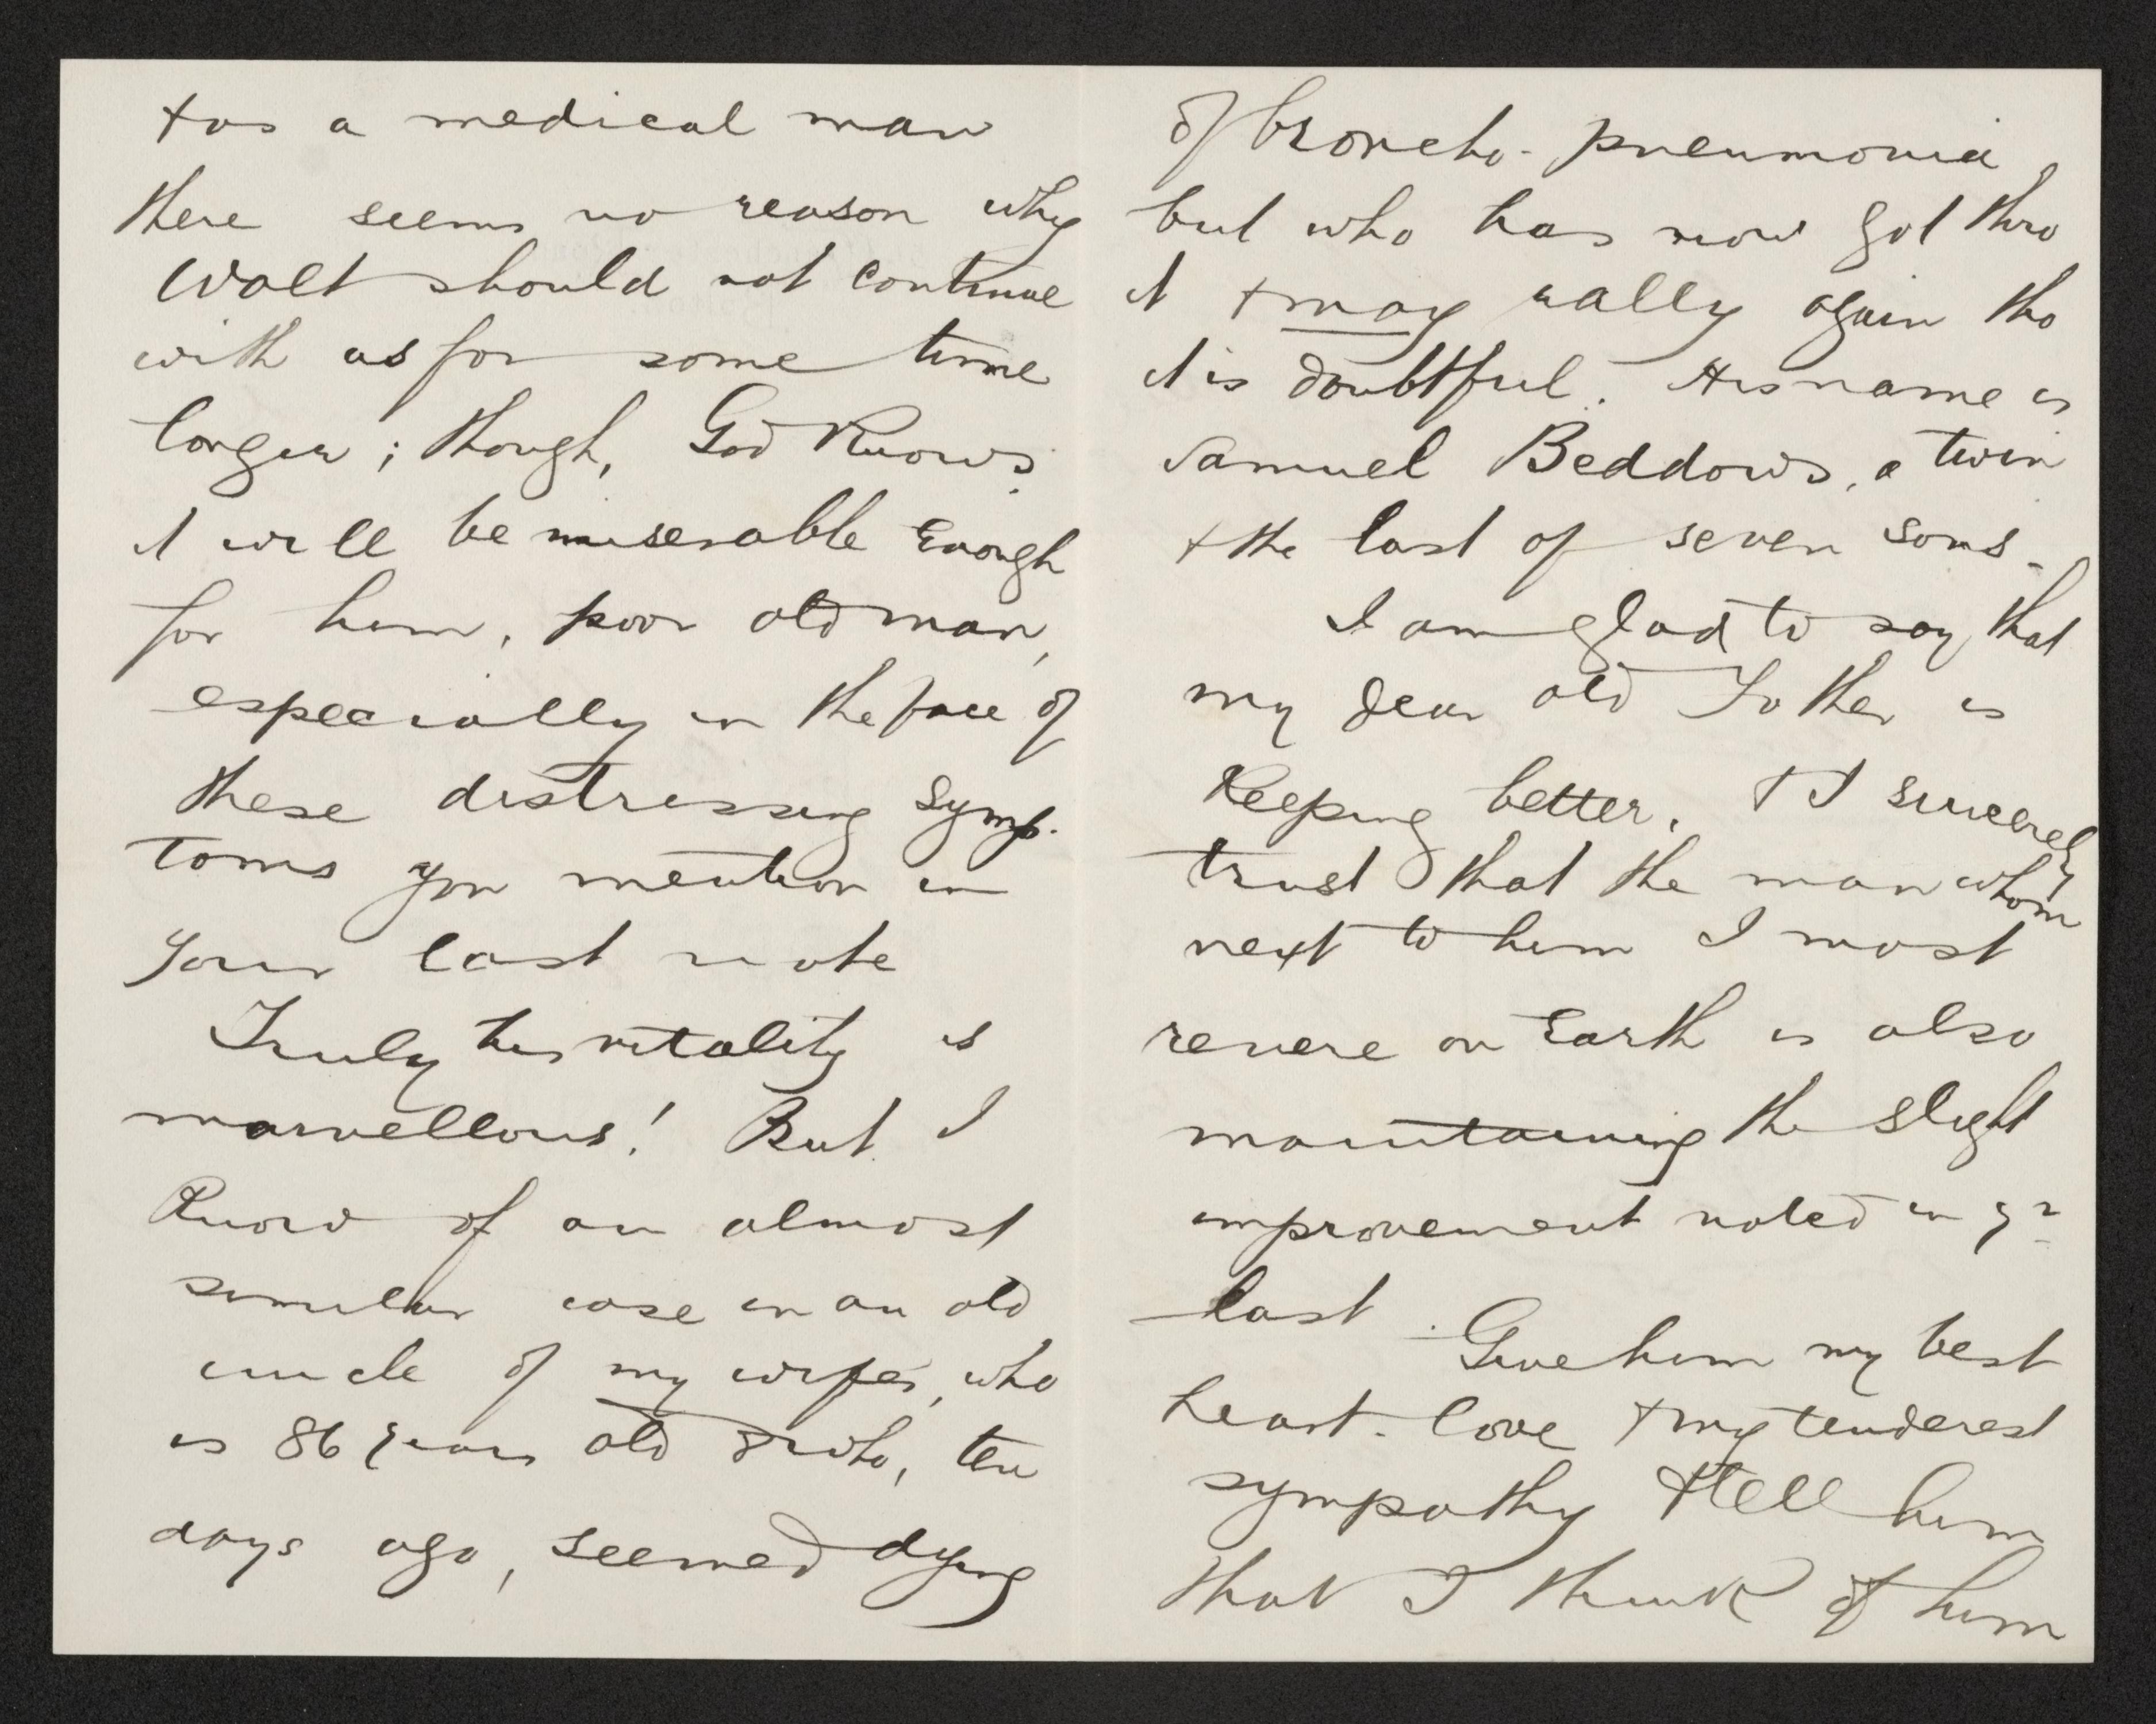 & as a medical man
there seems no reason why
Walt should not continue
with us for some time
longer; though, God knows,
it will be miserable enough
for him, poor old man,
especially in the face of
these distressing symp-
toms you mention in
your last note
Truly his vitality is
marvellous! But I
know of an almost
similar case in an old
uncle of my wife's, who
is 86 years old & who, ten
days ago, seemed dying
of broncho-pneumonia
but who has now got thro
it & may rally again tho
it is doubtful. His name is
Samuel Beddows, a twin
& the last of seven sons.
I am glad to say that
my dear old Father is
keeping better, & I sincerely
trust that the man whom
next to him I most
revere on Earth is also
maintaining the slight
improvement noted in yr
last. Give him my best
heart-love & my tenderest
sympathy & tell him
that I think of him